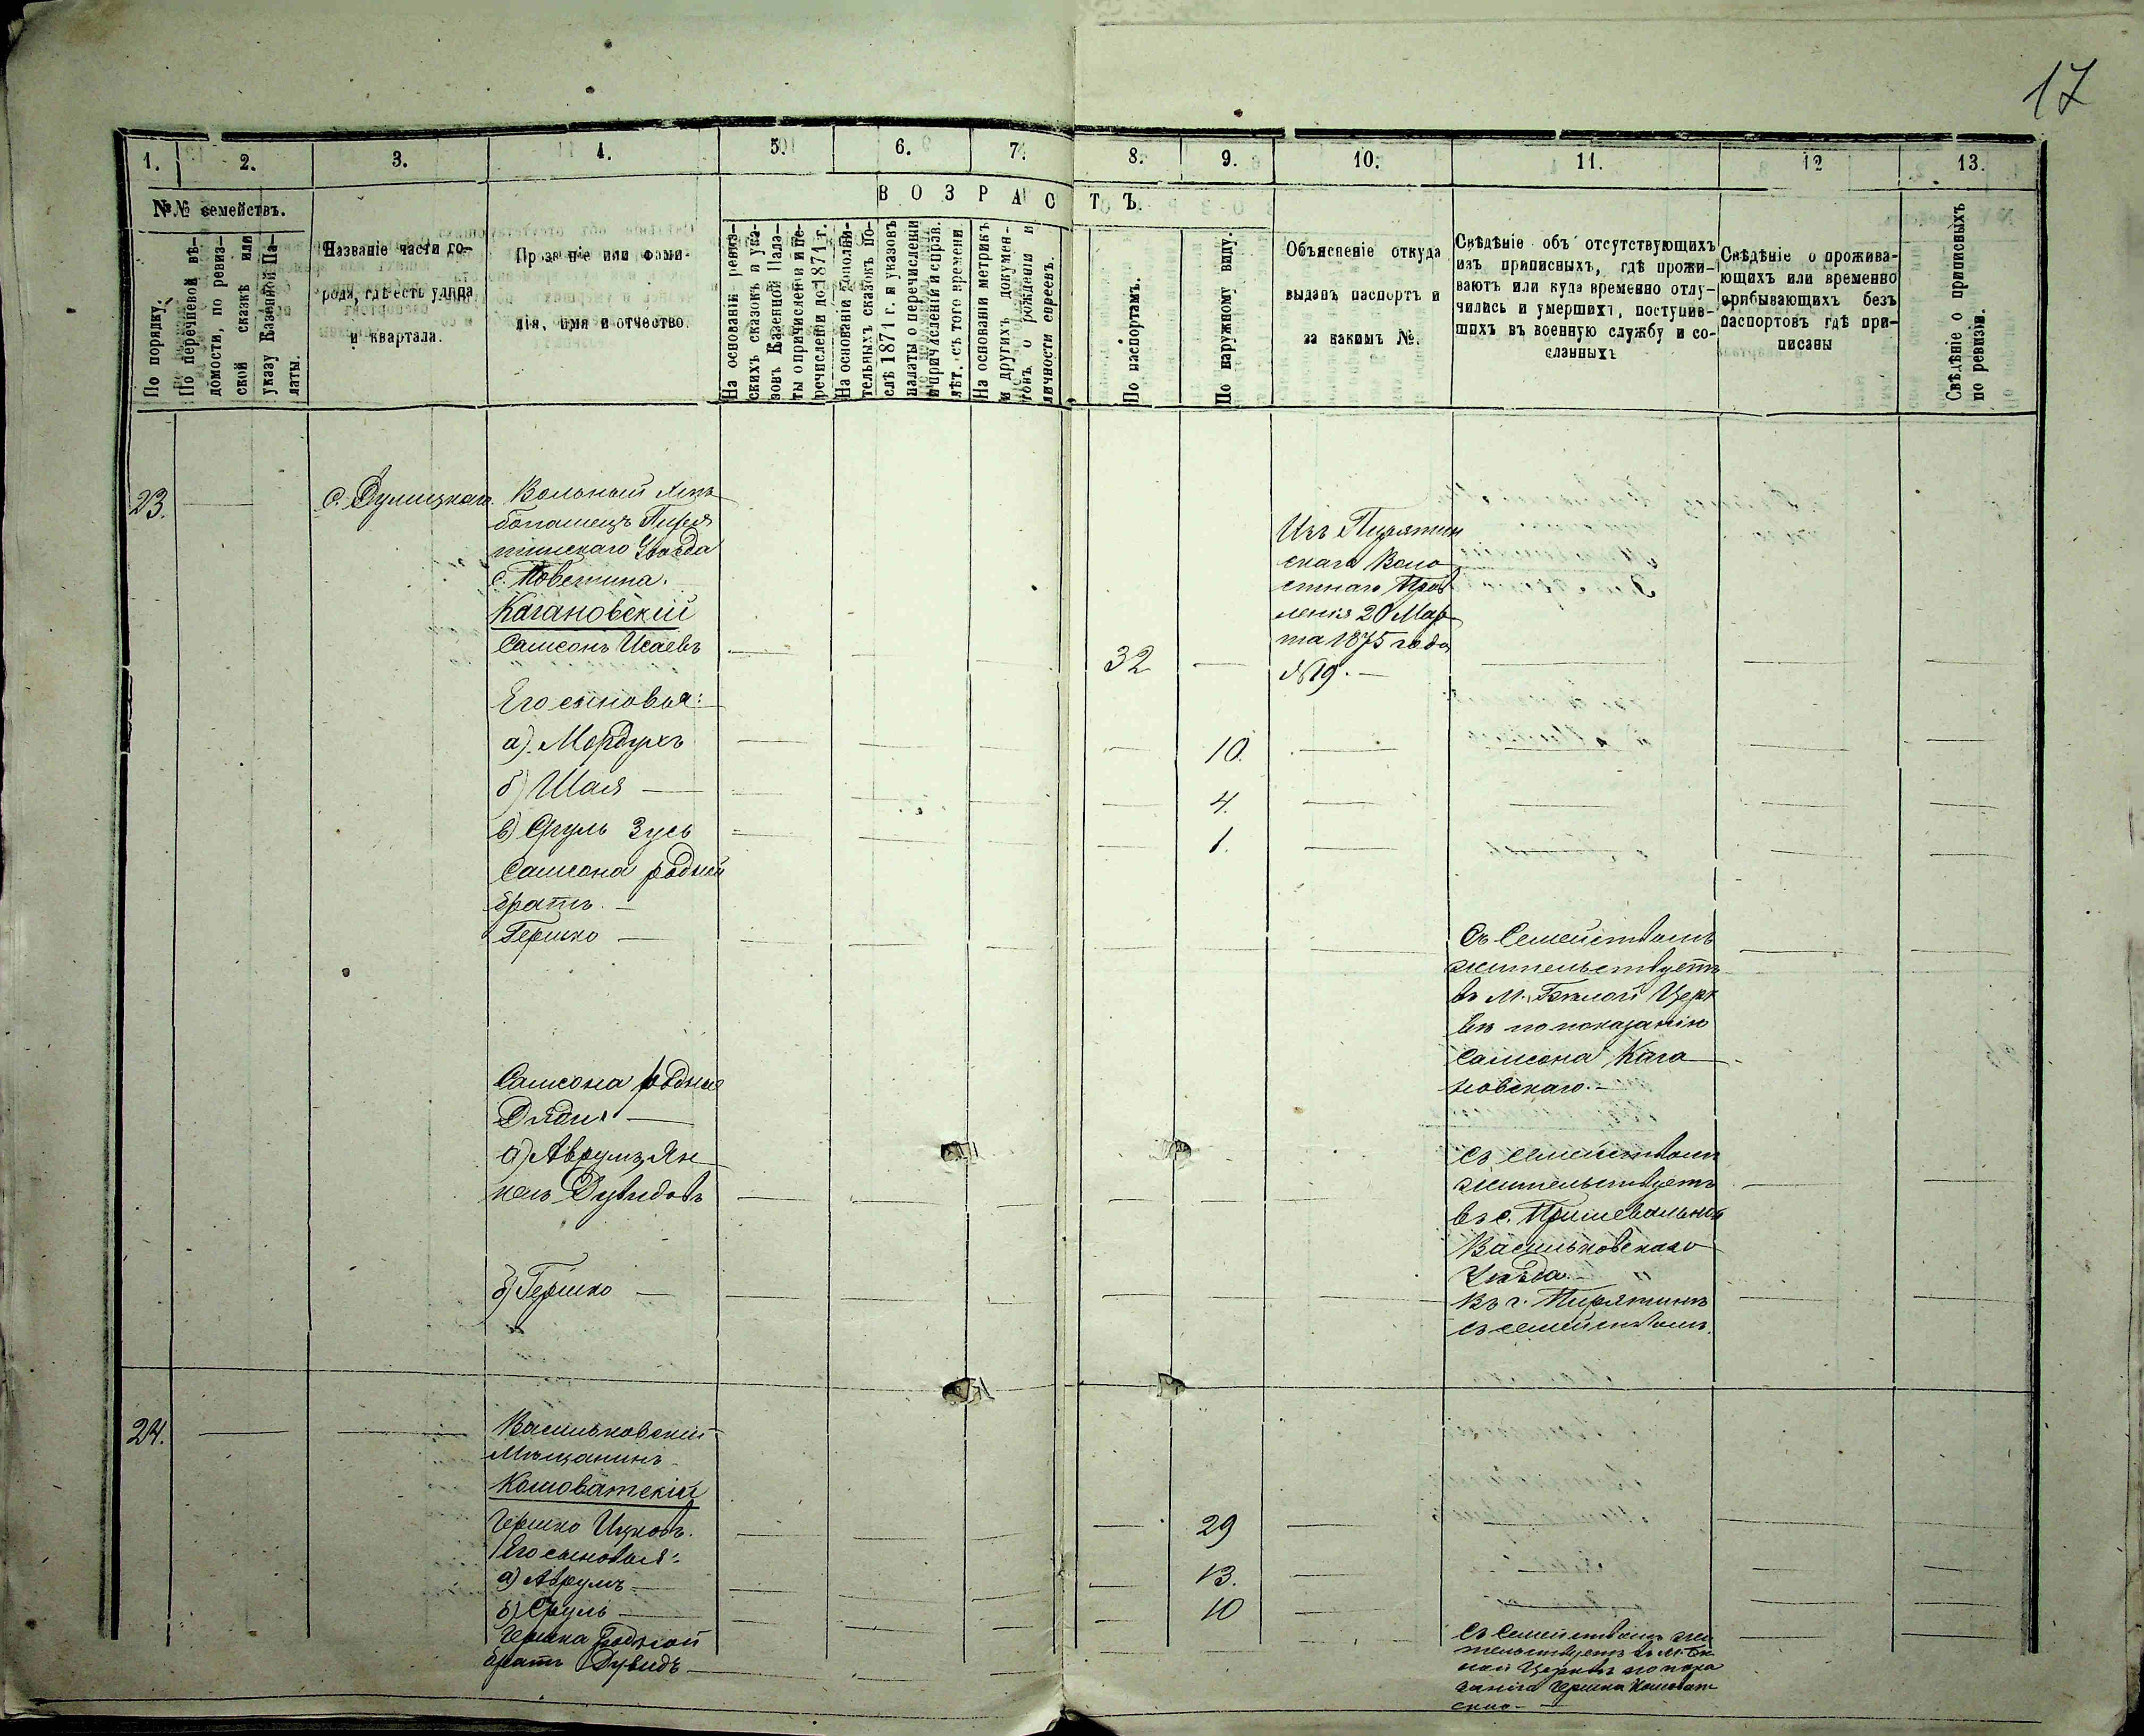 17
1. 2. 3. 4. 5. 6. 7. 8. 9. 10. 11. 12 13.
ВОЗРАСТЪ.
№№ семействъ.
По порядку.
По перечневой вѣ-
домости, по ревиз-
ской сказкѣ или
указу Казенной Па-
латы.
Названіе части го-
рода, гдѣ есть улица
и квартала.
Прозваніе или фами-
лія, имя и отчество.
На основаніи ревиз-
скихъ сказокъ и ука-
зовъ Казенной Пала-
ты о причисленіи и пе-
речисленіи до 1871 г.
На основаніи дополни-
тельныхъ сказокъ по-
слѣ 1871 г. и указовъ
палаты о перечисленіи
и причисленіи и спрв.
лѣт. съ того времени.
На основаніи метрикъ
и другихъ докумен-
товъ о рожденіи и
личности евреевъ.
По паспортамъ.
По наружному виду.
Объясненіе откуда
выданъ паспортъ и
за какимъ №.
Свѣдѣніе объ отсутствующихъ
изъ приписныхъ, гдѣ прожи-
ваютъ или куда временно отлу-
чились и умершихъ, поступив-
шихъ въ военную службу и со-
сланныхъ
Свѣдѣніе о прожива-
ющихъ или временно
прибывающихъ безъ
паспортовъ гдѣ при-
писаны
Свѣдѣніе о приписныхъ
по ревизіи.
23.
Вольный хлѣ
бопашецъ Пиря
тинскаго Уѣзда
с.
Кагановскій
Самсонъ Исаевъ
32
Изъ Пирятин
скаго Воло
стнаго Прав
ленія 20 Мар
та 1875 года
№19.
Его сыновья:
а). Мордухъ 10.
б) Шая 4.
в) Сруль Зусь 1.
Самсона родной
братъ.
Гершко
Съ Семействомъ
жительствуетъ
въ М. Бѣлой Церк
вѣ по показанію
Самсона Кага
новскаго.
Самсона родные
Дяди
а) Аврумъ Ян
кель Дувидовъ
съ семействомъ
жительствуетъ
въ с.
Васильковскаго
Уѣзда.
б) Гершко
Въ г. Пирятинѣ
съ семействомъ.
24.
Васильковскій
Мѣщанинъ
Кошоватскій
Гершко Ицковъ. 29
Его сыновья:
а) Аврумъ 13.
б) Сруль 10
Гершка родной
братъ Дувидъ
Съ Семействомъ жи
тельствуетъ въ М. Бѣ
лой Церквѣ по пока
занію Гершка Кошоват
скаго